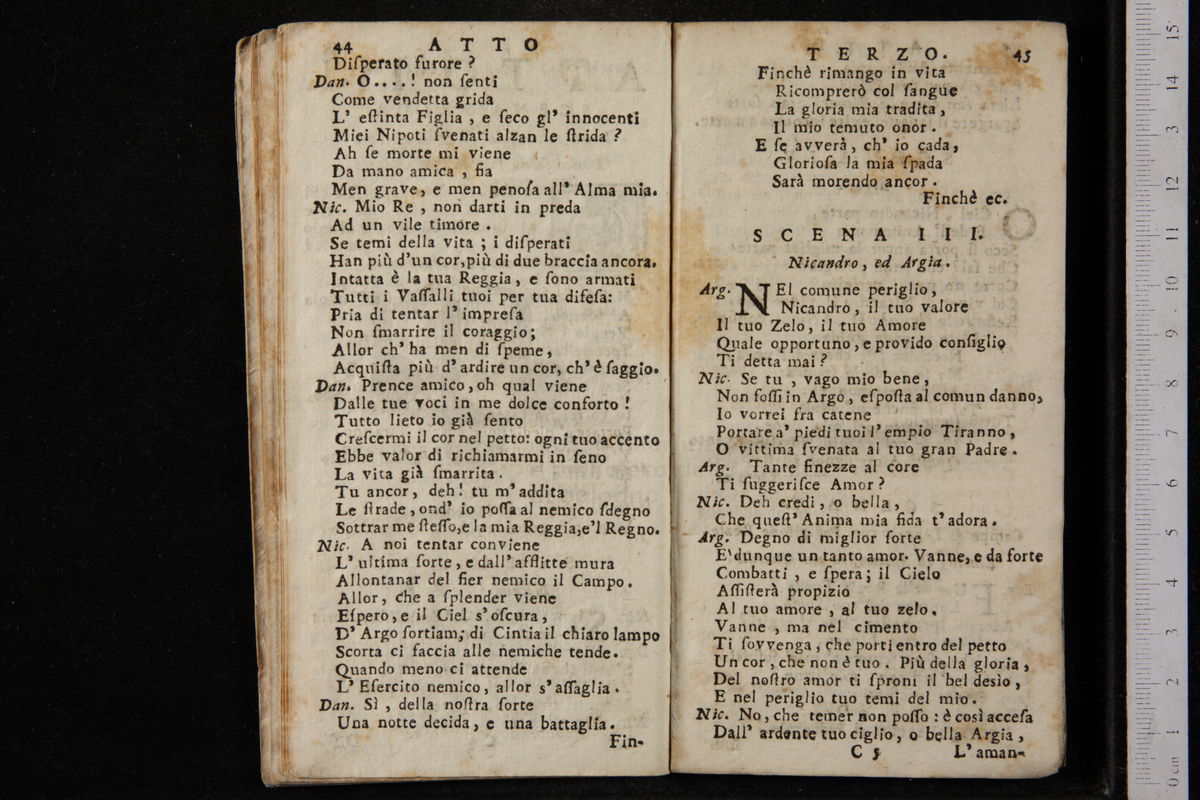 44 ATTO
Diſperato furore ?
Dan. O....! non ſenti
Come vendetta grida
L' eſtinta Figlia , e ſeco gl' innocenti
Miei Nipoti ſvenati alzan le ſtrida ?
Ah ſe morte mi viene
Da mano amica , fia
Men grave, e men penoſa all' Alma mia.
Nic. Mio Re , non darti in preda
Ad un vile timore .
Se temi della vita ; i diſperati
Han più d'un cor,più di due braccia ancora.
Intatta è la tua Reggia , e ſono armati
Tutti i Vaſſalli tuoi per tua difeſa:
Pria di tentar l' impreſa
Non ſmarrire il coraggio;
Allor ch' ha men di ſpeme,
Acquiſta più d' ardire un cor, ch' è ſaggio.
Dan. Prence amico, oh qual viene
Dalle tue voci in me dolce conforto !
Tutto lieto io già ſento
Creſcermi il cor nel petto: ogni tuo accento
Ebbe valor di richiamarmi in ſeno
La vita già ſmarrita .
Tu ancor, deh! tu m' addita
Le ſtrade, ond' io poſſa al nemico ſdegno
Sottrar me ſteſſo,e la mia Reggia,e'l Regno.
Nic. A noi tentar conviene
L' ultima ſorte, e dall' afflitte mura
Allontanar del fier nemico il Campo.
Allor, che a ſplender viene
Eſpero, e il Ciel s' oſcura,
D' Argo ſortiam; di Cintia il chiaro lampo
Scorta ci faccia alle nemiche tende.
Quando meno ci attende
L' Eſercito nemico, allor s' aſſaglia .
Dan. Sì , della noſtra ſorte
Una notte decida, e una battaglia.
Fin-
TERZO. 45
Finchè rimango in vita
Ricomprerò col ſangue
La gloria mia tradita,
Il mio temuto onor .
E ſe avverà, ch' io cada,
Glorioſa la mia ſpada
Sarà morendo ancor .
Finchè ec.
SCENA III.
Nicandro, ed Argia.
Arg. NEl comune periglio,
Nicandro, il tuo valore
Il tuo Zelo, il tuo Amore
Quale opportuno, e provido conſiglio
Ti detta mai ?
Nic. Se tu , vago mio bene,
Non foſſi in Argo, eſpoſta al comun danno,
Io vorrei fra catene
Portare a' piedi tuoi l' empio Tiranno,
O vittima ſvenata al tuo gran Padre .
Arg. Tante finezze al core
Ti ſuggeriſce Amor ?
Nic. Deh credi, o bella,
Che queſt' Anima mia fida t' adora.
Arg. Degno di miglior ſorte
E' dunque un tanto amor. Vanne, e da forte
Combatti , e ſpera; il Cielo
Aſſiſterà propizio
Al tuo amore , al tuo zelo.
Vanne , ma nel cimento
Ti ſovvenga, che porti entro del petto
Un cor, che non è tuo . Più della gloria,
Del noſtro amor ti ſproni il bel desìo,
E nel periglio tuo temi del mio.
Nic. No, che temer non poſſo : è così acceſa
Dall' ardente tuo ciglio, o bella Argia,
C 5 L' aman-
0 cm 1 2 3 4 5 6 7 8 9 10 11 12 13 14 15